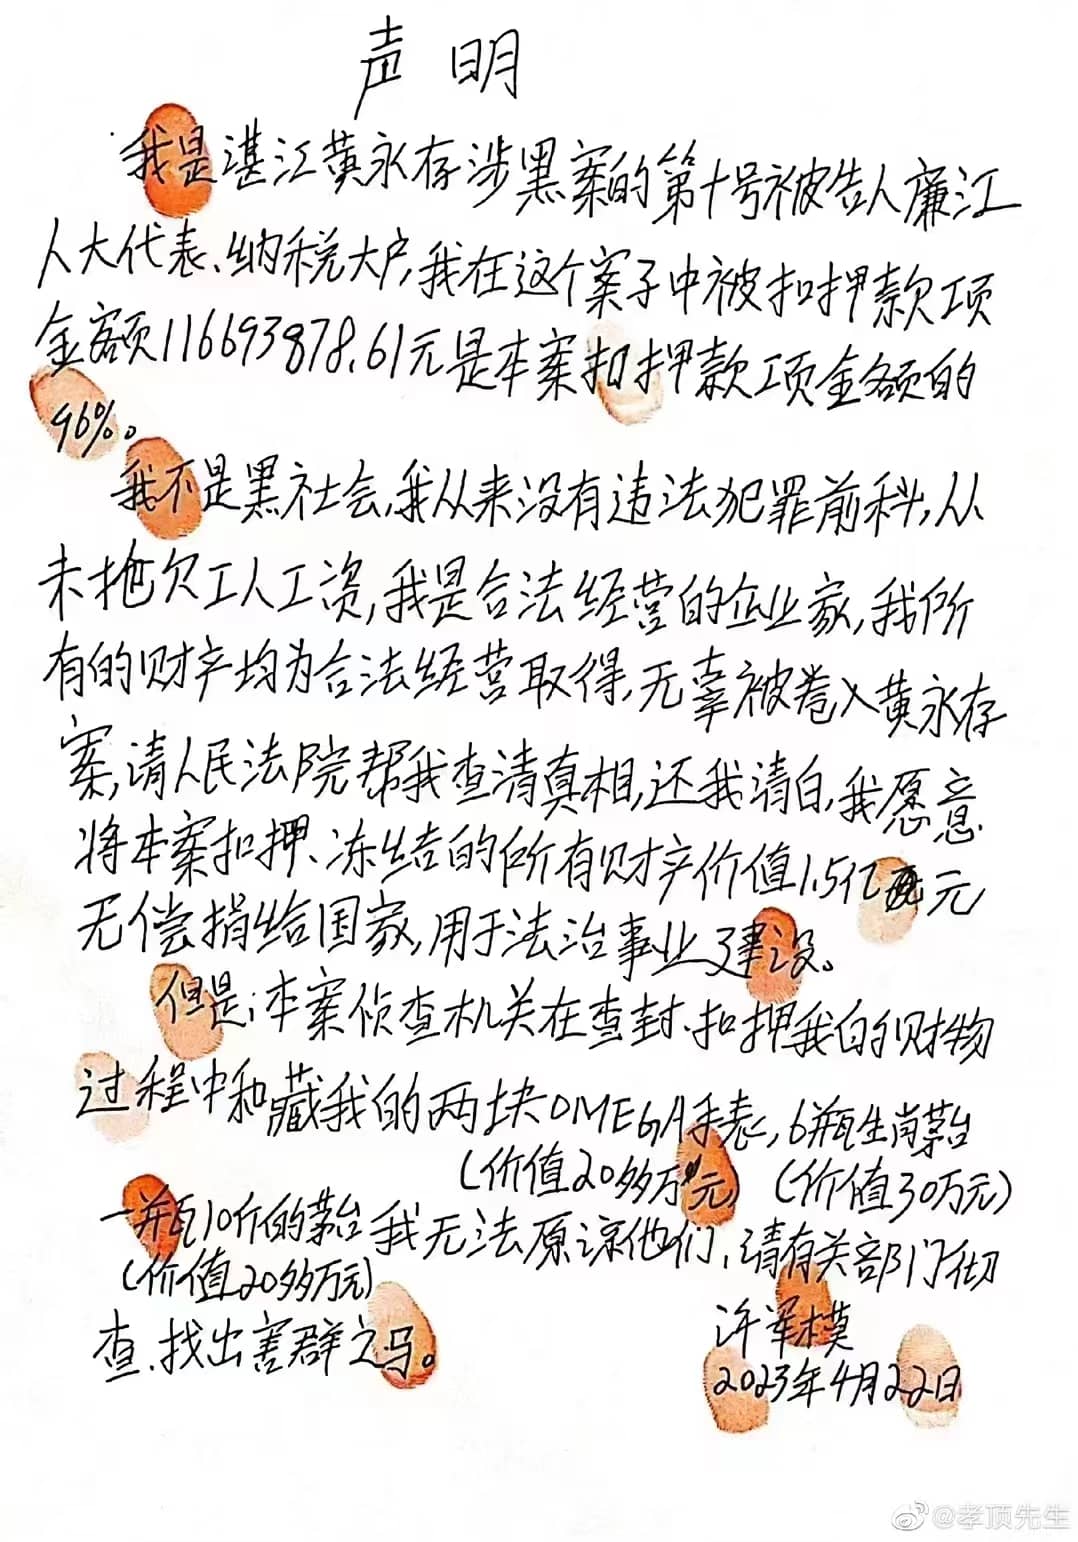 声明
我是湛江黄永存涉黑案的第十号被告人廉江
人大代表、纳税大户,我在这个案子中被扣押款项
金额116693878.61元是本案扣押款项金额的
96%。
我不是黑社会,我从来没有违法犯罪前科,从
未拖欠工人工资,我是合法经营的企业家,我所
有的财产均为合法经营取得,无辜被卷入黄永存
案,请人民法院帮我查清真相,还我清白,我愿意
将本案扣押、冻结的所有财产价值1.5亿元
无偿捐给国家,用于法治事业建设。
但是:本案侦查机关在查封、扣押我的财物
过程中私藏我的两块OMEGA手表,6瓶生肖茅台
(价值20多万元) (价值30万元)
一瓶10斤的茅台我无法原谅他们,请有关部门彻
(价值20多万元)
查、找出害群之马。
许军模
2023年4月22日
@孝顶先生